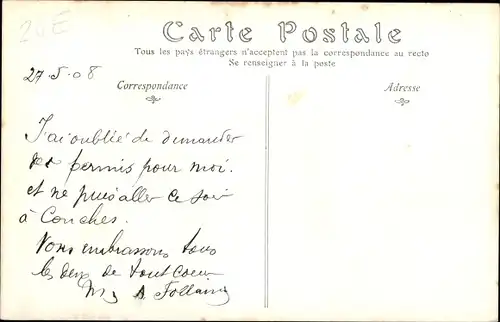 20E
Carte Postale
Tous les pays étrangers n'acceptent pas la correspondance au recto
Se renseigner à la poste
27-5-08
Correspondance
Adresse
J'ai oublié de demander
permis pour moi.
et ne puis aller ce soir
à Conches.
Vous embrassons tous
les deux de tout coeur
A